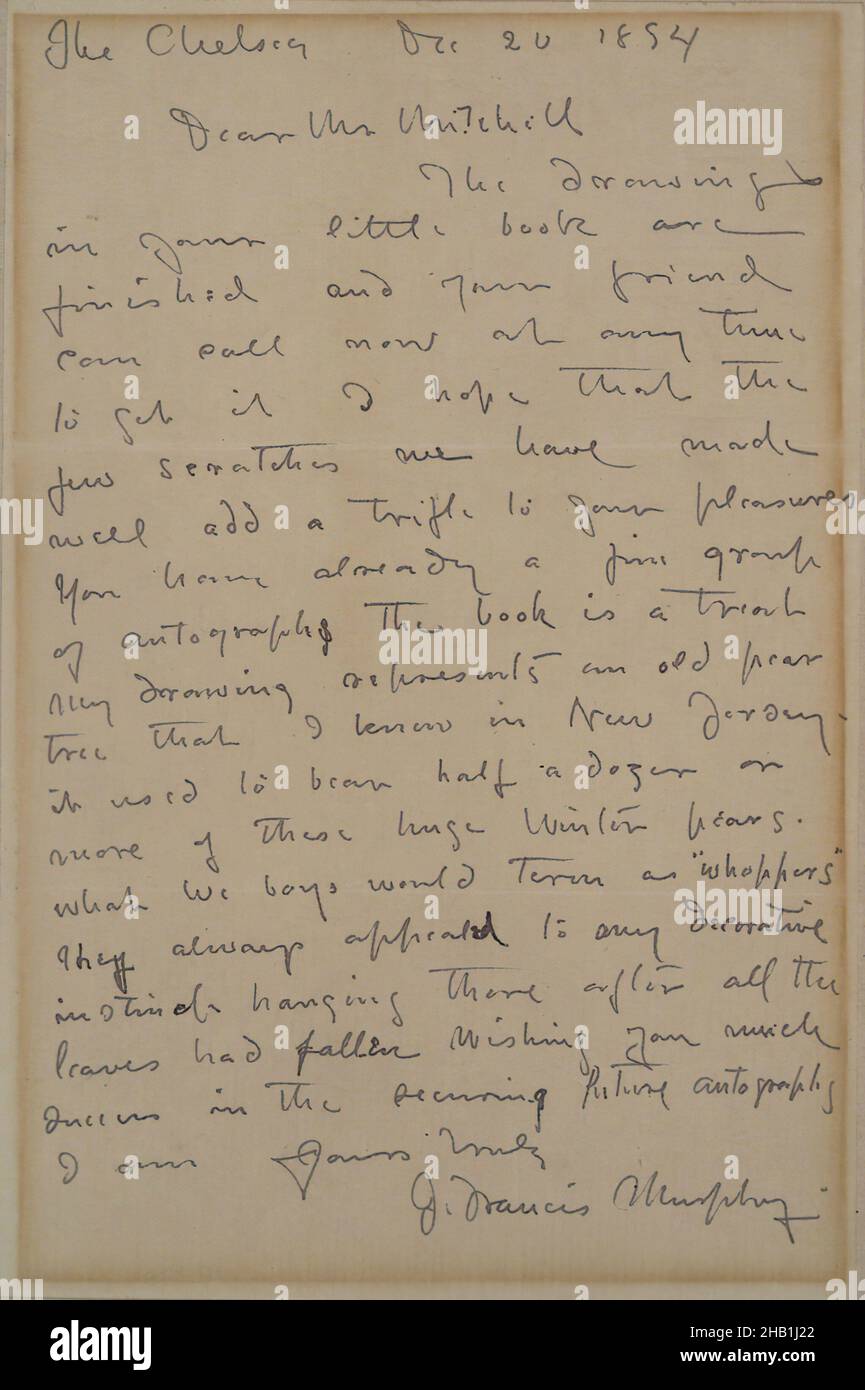 The Chelsea Dec 20 1894
Dear Mr Mitchell
The drawings
in your little book are
finished and your friend
can call now at any time
to get it I hope that the
few scratches we have made
will add a trifle to your pleasures
You have already a fine group
of autographs the book is a treat
My drawing represents an old pear
tree that I know in New Jersey.
it used to bear half a dozen or
more of these huge Winter pears.
what we boys would term as "whoppers"
they always appealed to my decorative
instinct hanging there after all the
leaves had fallen Wishing you much
success in the securing future autographs
I am Yours Truly
J. Francis Murphy
alamy
Image ID: 2HB1J22
www.alamy.com